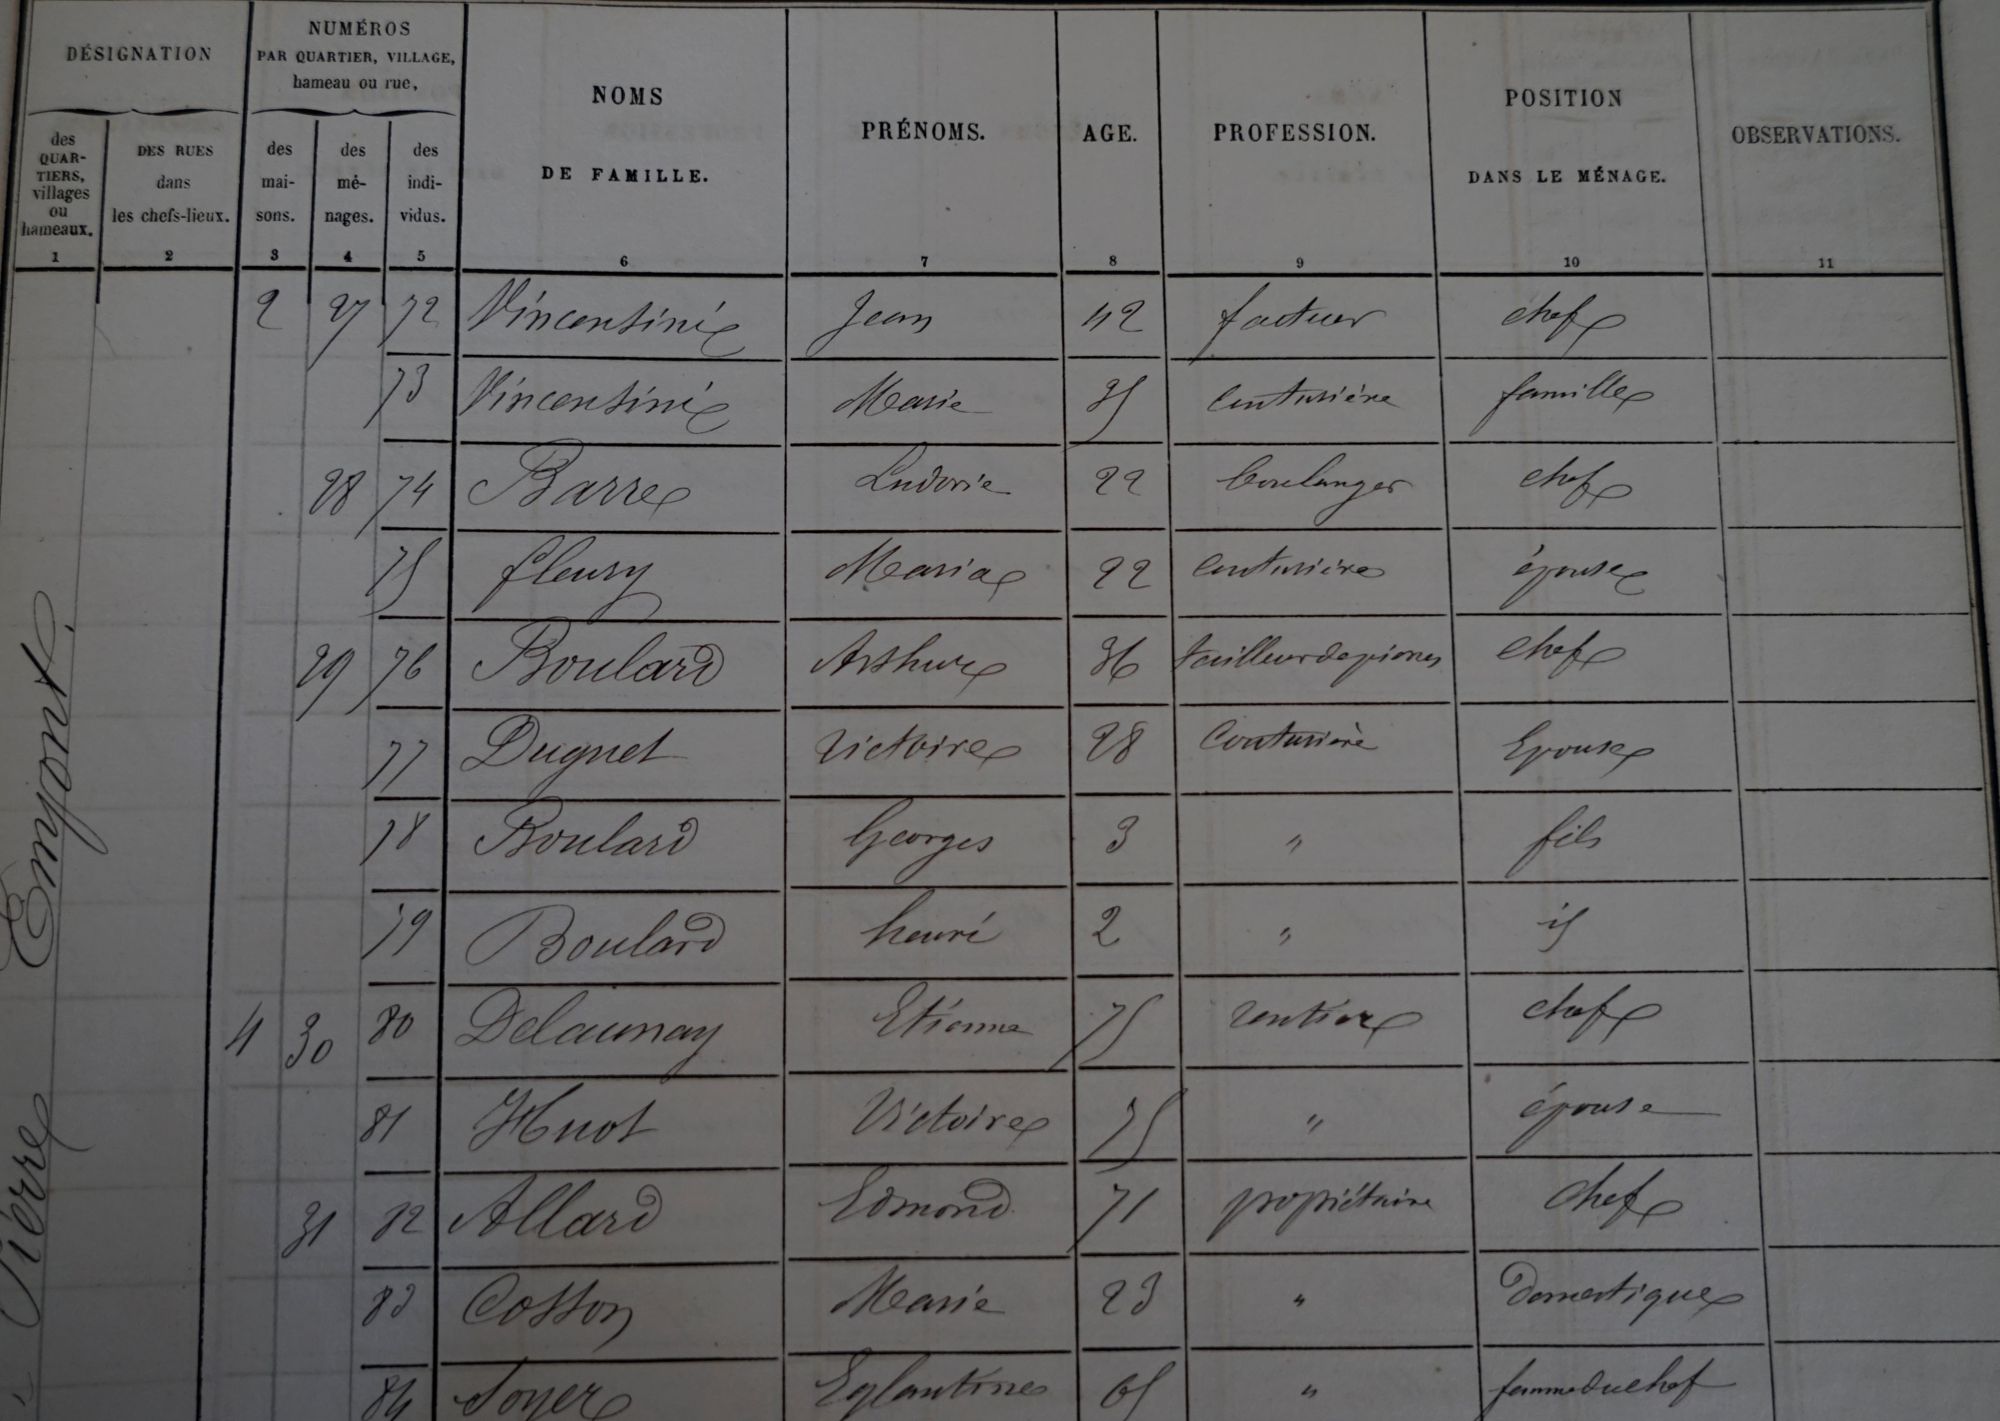 DÉSIGNATION
NUMÉROS
PAR QUARTIER, VILLAGE,
hameau ou rue,
NOMS
DE FAMILLE.
PRÉNOMS.
AGE.
PROFESSION.
POSITION
DANS LE MÉNAGE.
OBSERVATIONS.
des
QUAR-
TIERS,
villages
ou
hameaux.
DES RUES
dans
les chefs-lieux.
des
mai-
sons.
des
mé-
nages.
des
indi-
vidus.
1 2 3 4 5 6 7 8 9 10 11
2 27 72 Vincentini Jean 42 facteur chef
73 Vincentini Marie 35 couturière famille
28 74 Barre Ludovie 22 boulanger chef
75 fleury Maria 22 couturière épouse
29 76 Boulard Arthur 36 tailleur de pierres chef
77 Duguet Victoire 28 Couturière Epouse
78 Boulard Georges 3 " fils
79 Boulard henri 2 " id
4 30 80 Delaunay Etienne 75 rentier chef
81 Huot Victoire 75 " épouse
31 82 Allard Edmond 71 propriétaire chef
83 Cosson Marie 23 " Domestique
84 Soyer Eglantine 65 " femme du chef
Pierre Emjont.